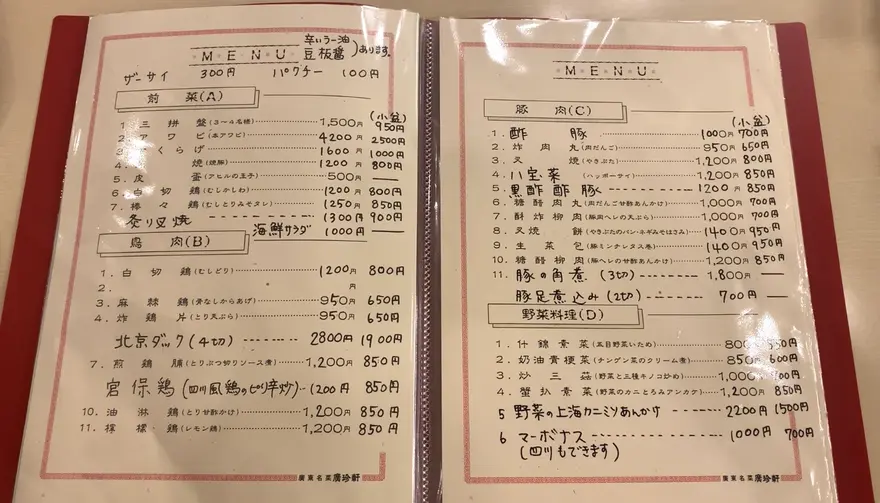 辛いラー油
豆板醤 あります。
MENU
ザーサイ 300円 パクチー 100円
前菜(A)
(小盆)
1. 三拼盤(3〜4名様) 1,500円 950円
2. アワビ(本アワビ) 4200円 2500円
くらげ 1600円 1000円
4. 焼(焼豚) 1200円 800円
5. 皮蛋(アヒルの玉子) 500円 ―
6. 白切鶏(むしかしわ) 1200円 800円
7. 棒々鶏(むしとりみそタレ) 1250円 850円
炙り叉焼 1300円 900円
海鮮サラダ 1000円 ―
鶏肉(B)
1. 白切鶏(むしどり) 1200円 800円
2. 円
3. 麻棘鶏(骨なしからあげ) 950円 650円
4. 炸鶏片(とり天ぷら) 950円 650円
北京ダック(4切) 2800円 1900円
7. 煎鶏脯(とりぶつ切りソース煮) 1,200円 850円
宮保鶏(四川風鶏のピリ辛炒) 1200円 850円
10. 油淋鶏(とり甘酢かけ) 1,200円 850円
11. 檸檬鶏(レモン鶏) 1,200円 850円
廣東名菜 廣珍軒
MENU
豚肉(C)
(小盆)
1. 酢豚 1000円 700円
2. 炸肉丸(肉だんご) 950円 650円
3. 叉焼(やきぶた) 1,200円 800円
4. 八宝菜(ハッポーサイ) 1,200円 850円
5. 黒酢酢豚 1200円 850円
6. 糖醋肉丸(肉だんご甘酢あんかけ) 1,000円 700円
7. 酥炸柳肉(豚肉ヘレの天ぷら) 1,000円 700円
8. 叉焼餅(やきぶたのパン・ネギみそはさみ) 1400円 950円
9. 生菜包(豚ミンチレタス巻) 1400円 950円
10. 糖醋柳肉(豚ヘレの甘酢あんかけ) 1,200円 850円
11. 豚の角煮(3切) 1,800円 ―
豚足煮込み(2切) 700円 ―
野菜料理(D)
1. 什錦素菜(五目野菜いため) 800円 550円
2. 奶油青梗菜(チンゲン菜のクリーム煮) 850円 600円
3. 炒三菇(野菜と三種キノコ炒め) 1,000円 700円
4. 蟹扒素菜(野菜のカニとろみアンカケ) 1,200円 850円
5 野菜の上海カニミソあんかけ 2200円 1500円
6 マーボナス 1000円 700円
(四川もできます)
廣東名菜 廣珍軒